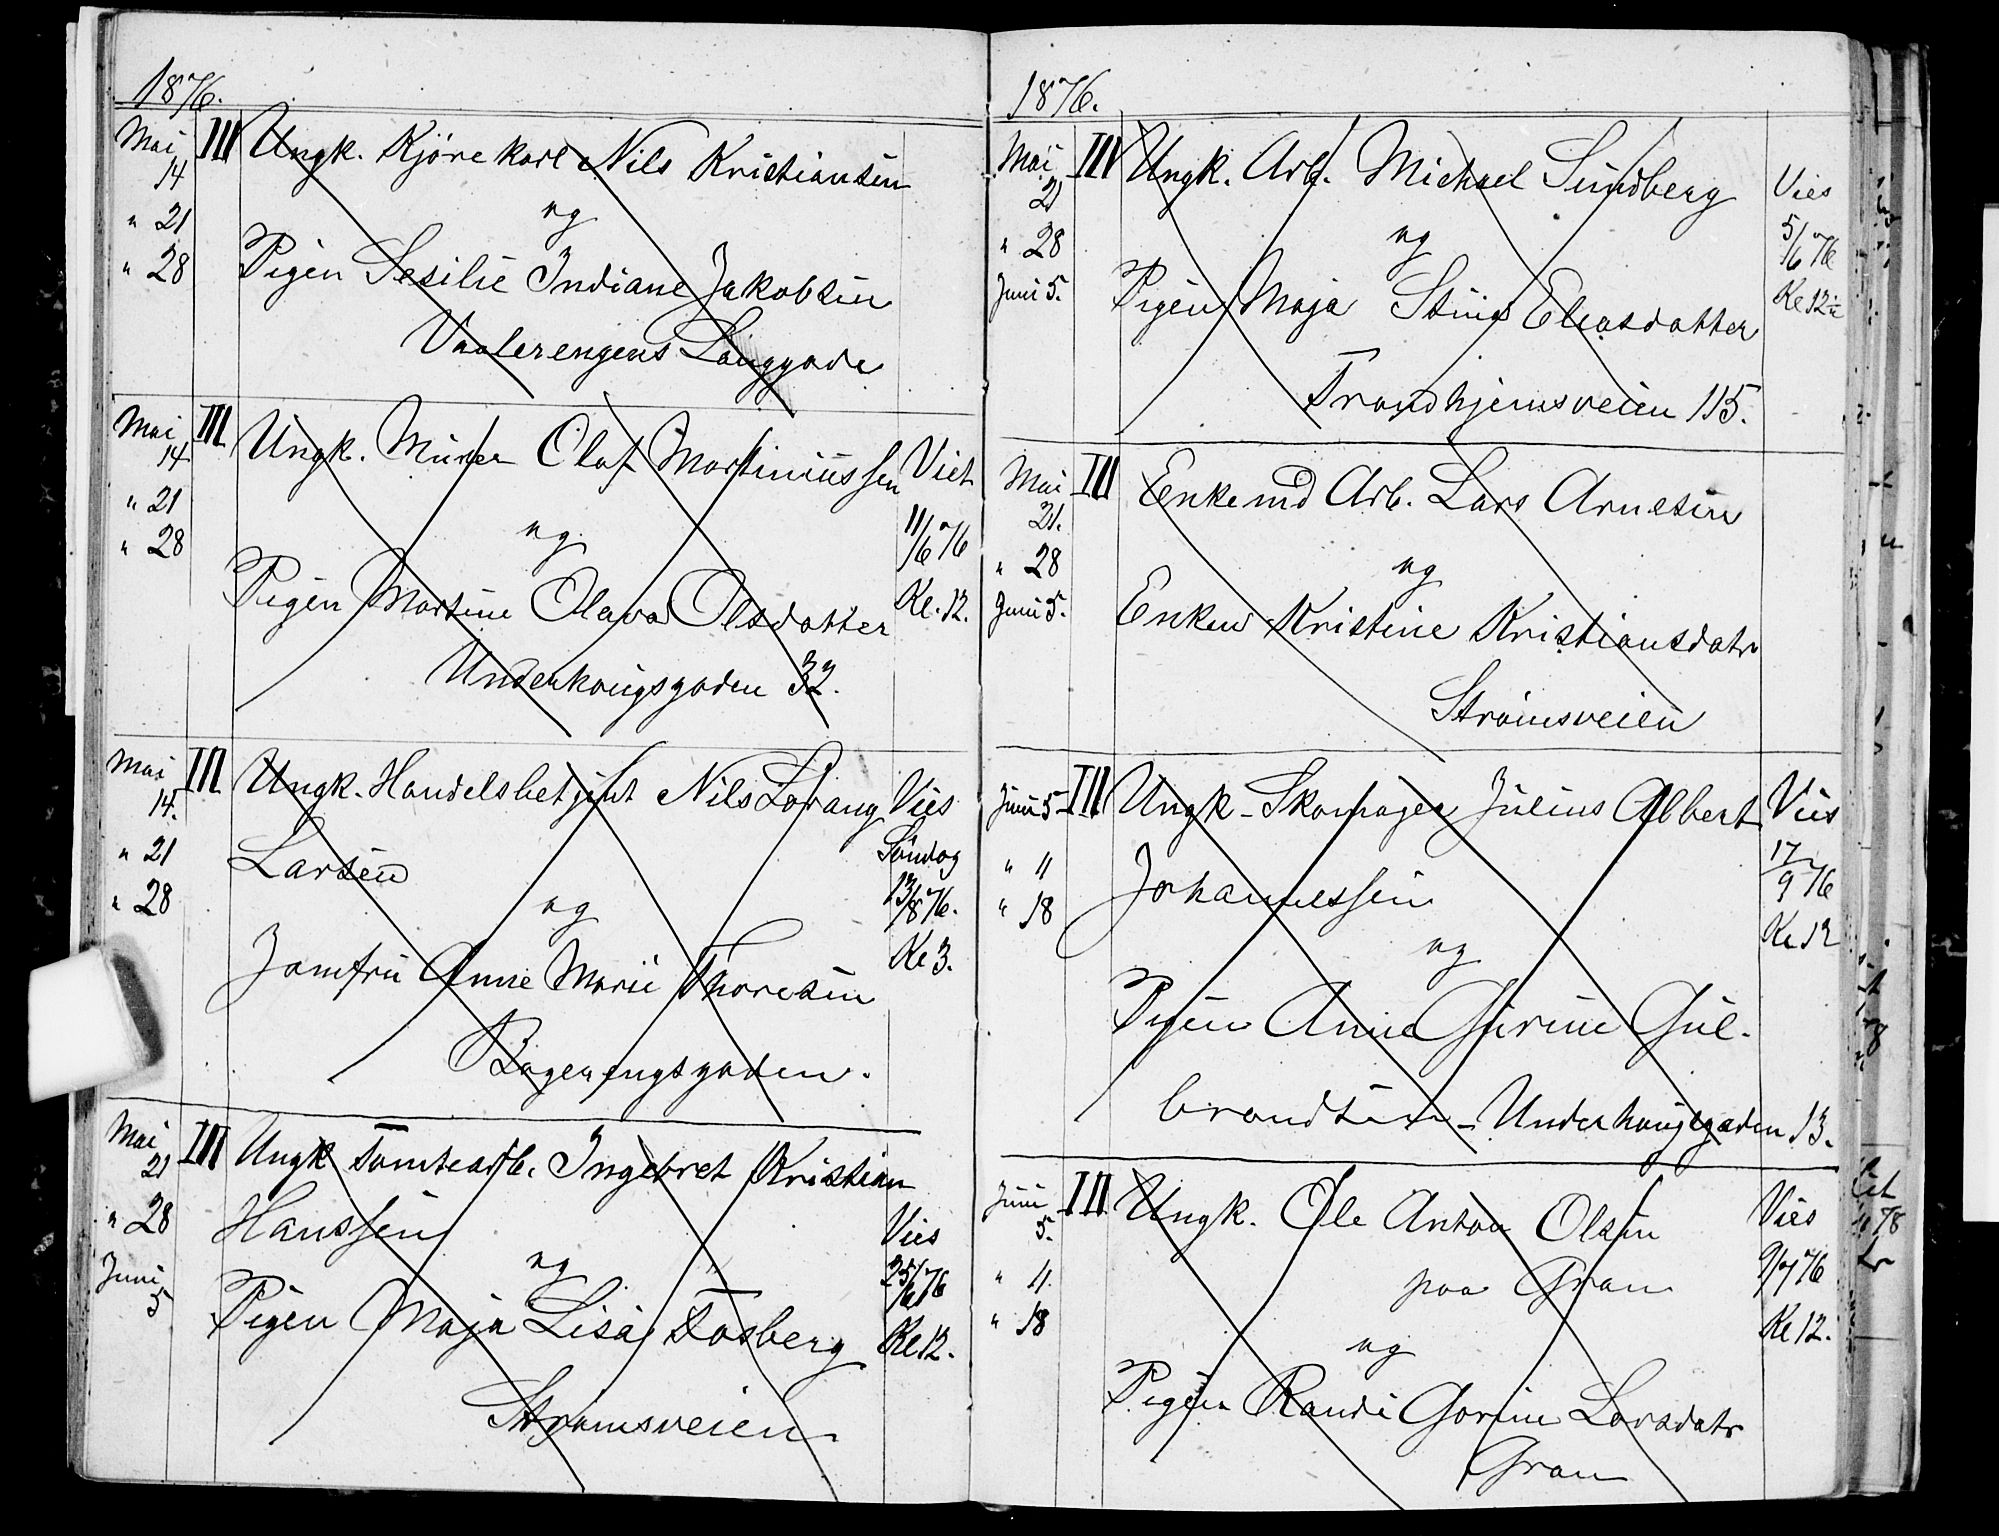 1876.
Mai 14 III Ungk. Kjörekarl Nils Kristiansen
" 21 og
" 28 Pigen Sesilie Indiane Jakobsen
Vaalerengens Langgade
Mai 14 III Ungk. Murer Olaf Martiniussen Viet
" 21 og 11/6 76
" 28 Pigen Martine Olava Olsdatter Kl. 12.
Underhaugsgaden 32.
Mai 14. III Ungk. Handelsbetjent Nils Lorang Vies
" 21 Larsen Söndag
" 28 og 13/8 76.
Jomfru Anne Marie Thoresen Kl 3.
Bagerengsgaden.
Mai 21 III Ungk Tomtearb. Ingebret Kristian
" 28 Hanssen Vies
og 25/6 76
Juni 5 Pigen Maja Lisa Fosberg Kl 12.
Strömsveien
1876.
Mai 21 III Ungk. Arb. Michael Sundberg Vies
" 28 og 5/6 76
Juni 5. Pigen Maja Stina Eliasdatter Kl 12
Trondhjemsveien 115.
Mai 21. III Enkemd Arb. Lars Arnesen
" 28 og
Juni 5. Enken Kristine Kristiansdatr
Strömsveien
Juni 5 III Ungk. Skomager Julius Albert Vies
" 11 Johannessen 17/9 76
" 18 og Kl 12
Pigen Anne Gurine Gul-
brandsen - Underhaugsgaden 13.
Juni 5. III Ungk. Ole Anton Olsen Vies
" 11. paa Gran 9/7 76
" 18 og Kl 12.
Pigen Randi Gorine Larsdatr
Gran